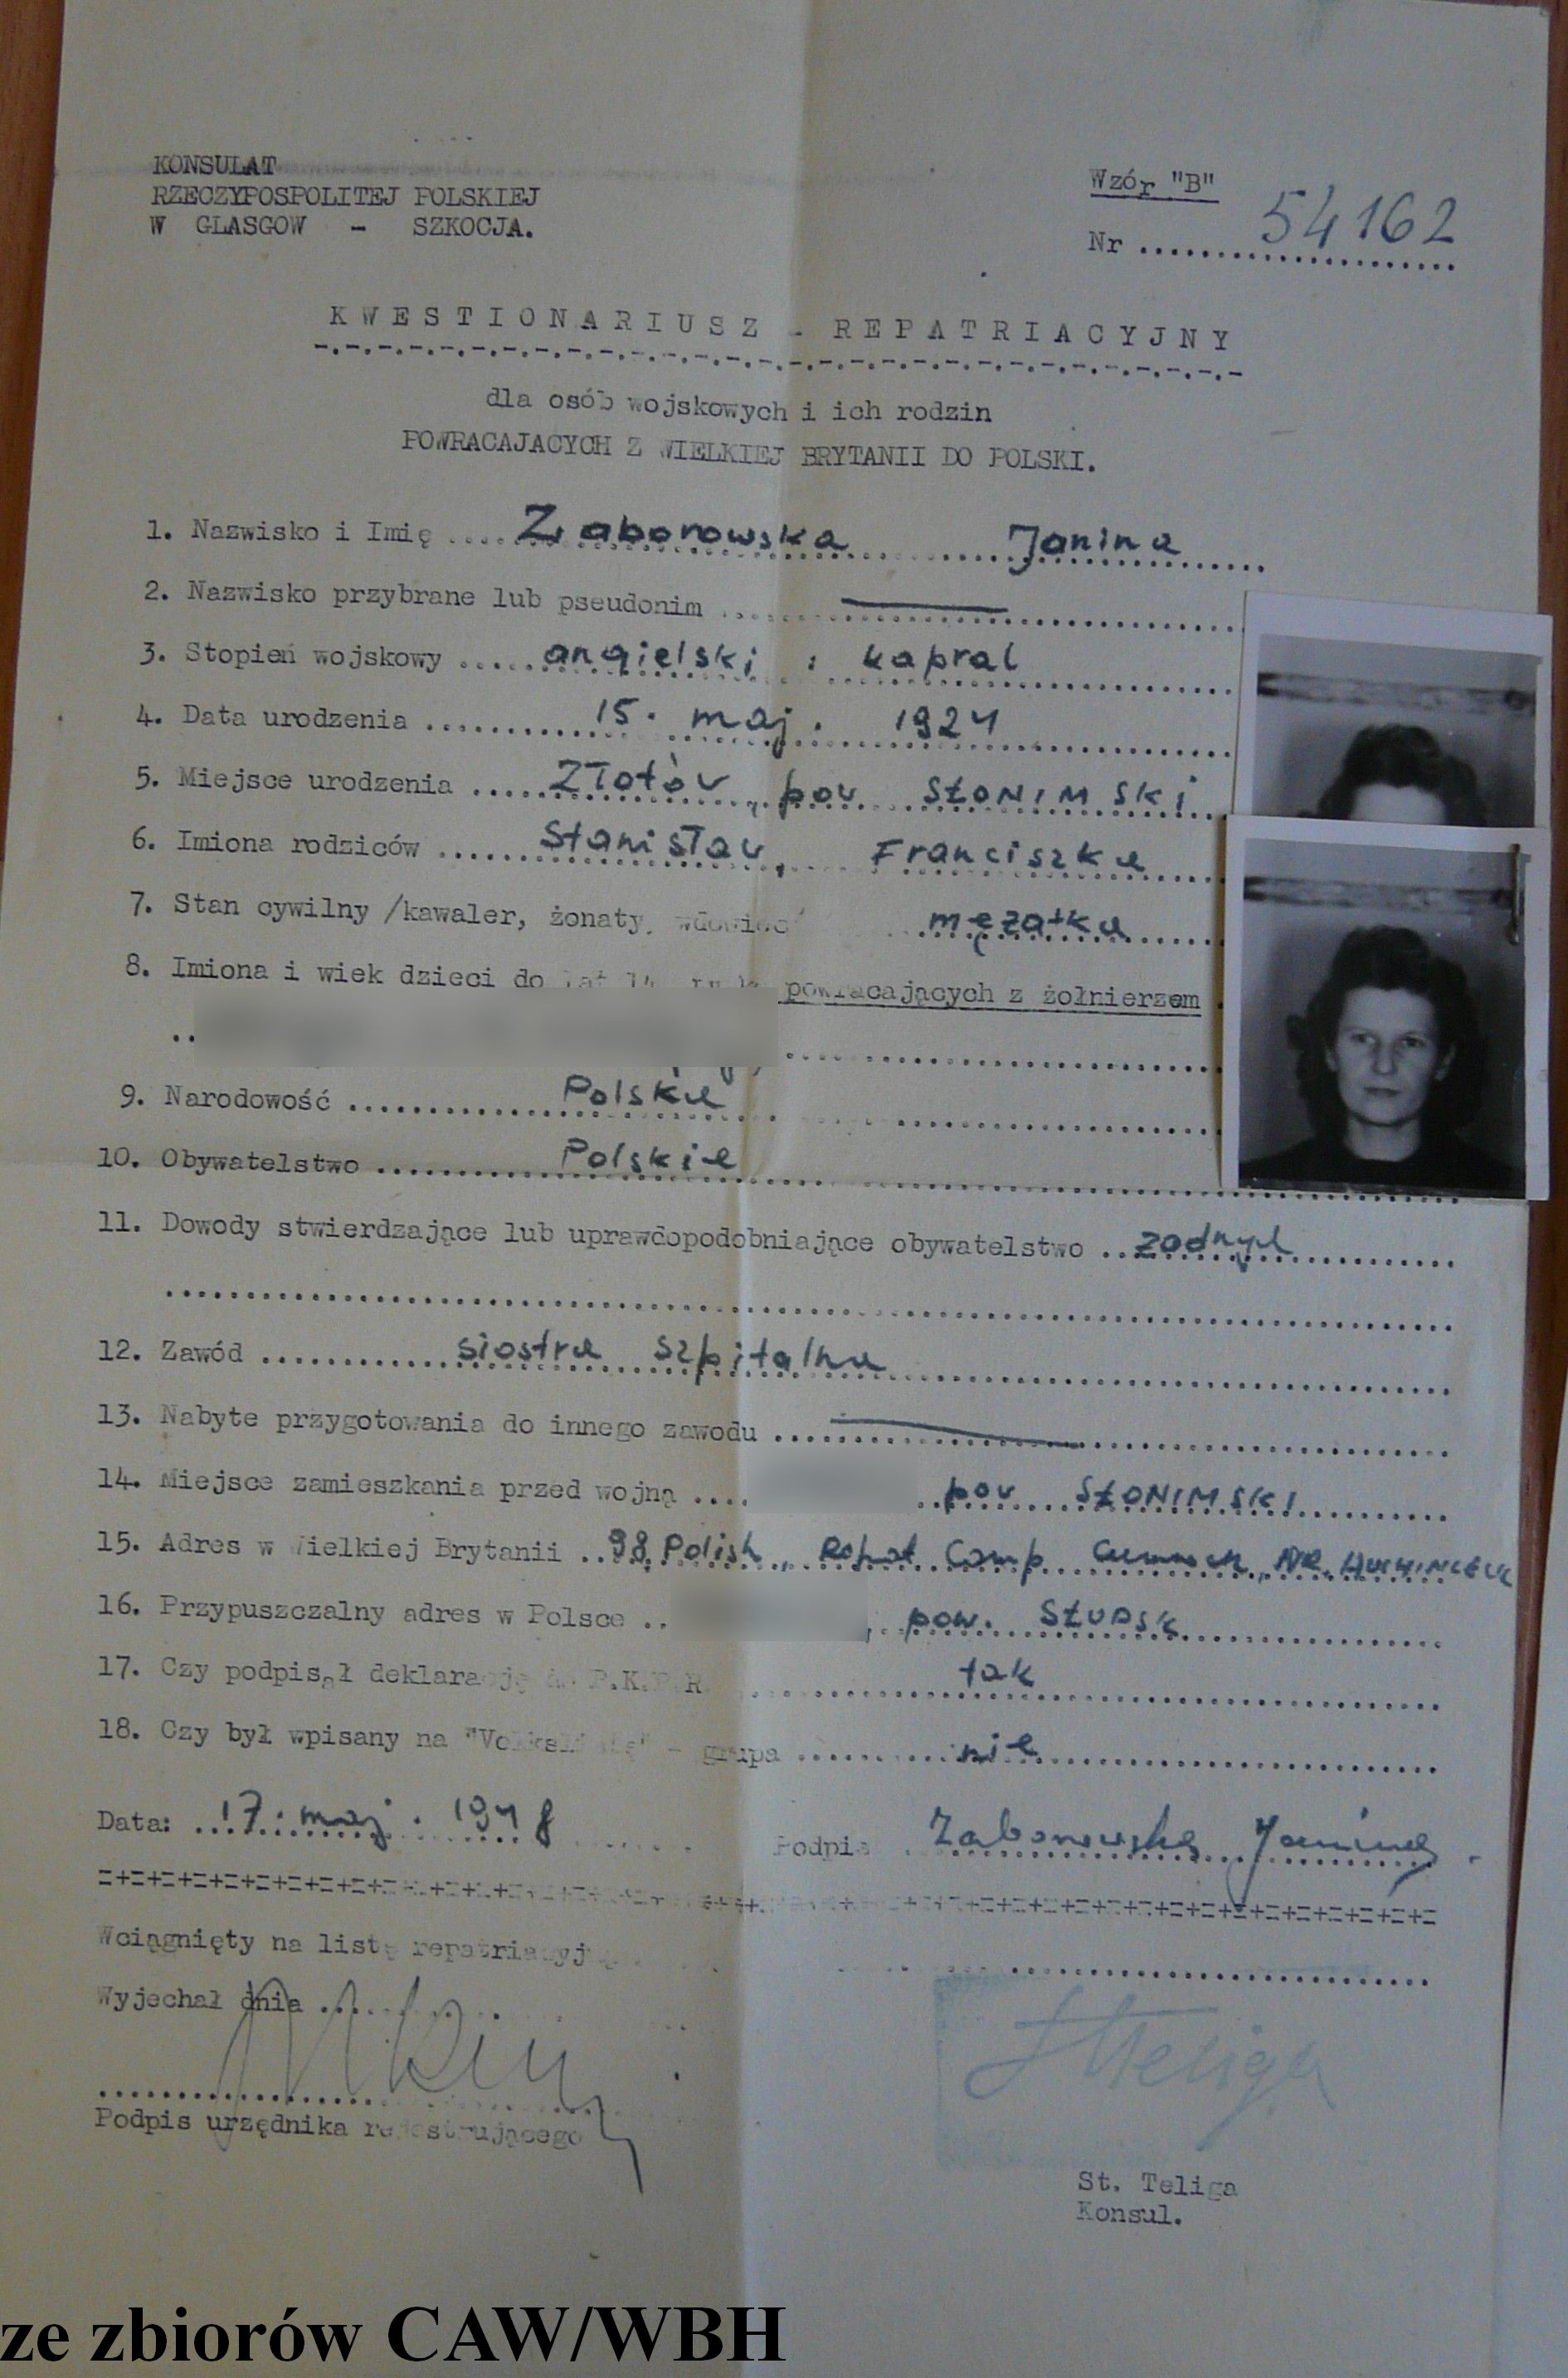 KONSULAT
RZECZYPOSPOLITEJ POLSKIEJ
W GLASGOW - SZKOCJA.
Wzór "B"
Nr ..... 54162
KWESTIONARIUSZ - REPATRIACYJNY
dla osób wojskowych i ich rodzin
POWRACAJACYCH Z WIELKIEJ BRYTANII DO POLSKI.
1. Nazwisko i Imię .... Zaborowska Janina
2. Nazwisko przybrane lub pseudonim ....
3. Stopień wojskowy .... angielski : kapral
4. Data urodzenia .... 15. maj. 1924
5. Miejsce urodzenia .... Złotów, pow SŁONIMSKI
6. Imiona rodziców .... Stanisław, Franciszka
7. Stan cywilny /kawaler, żonaty, wdowiec .... mężatka
8. Imiona i wiek dzieci do lat 14 powracających z żołnierzem
9. Narodowość .... Polska
10. Obywatelstwo .... Polskie
11. Dowody stwierdzające lub uprawdopodobniające obywatelstwo .. żadnych
12. Zawód .... siostra szpitalna
13. Nabyte przygotowania do innego zawodu ....
14. Miejsce zamieszkania przed wojną .... pow SŁONIMSKI
15. Adres w Wielkiej Brytanii .. 98 Polish, Repat Camp
16. Przypuszczalny adres w Polsce .. , pow. SŁUPSK
17. Czy podpisał deklarację do P.K.P.R. .... tak
18. Czy był wpisany na "Volkslistę" - grupa .... nie
Data: ... 17. maj. 1948
Podpis Zaborowska Janina
Wciągnięty na listę repatriacyjną
Wyjechał dnia ....
Podpis urzędnika rejestrującego
StTeliga
St. Teliga
Konsul.
ze zbiorów CAW/WBH